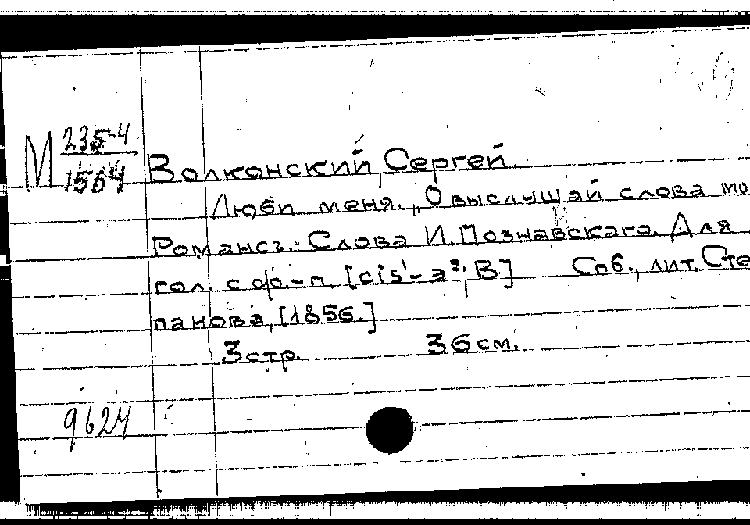 М 235-4
1564
Волконский, Сергей
Люби меня. „О выслушай слова мо
Романсъ. Слова И. Познавскаго. Для
гол. с ф.-п. [cis¹-a²; B] Спб., лит. Сте
панова, [1856.]
3 стр. 36 см.
9624